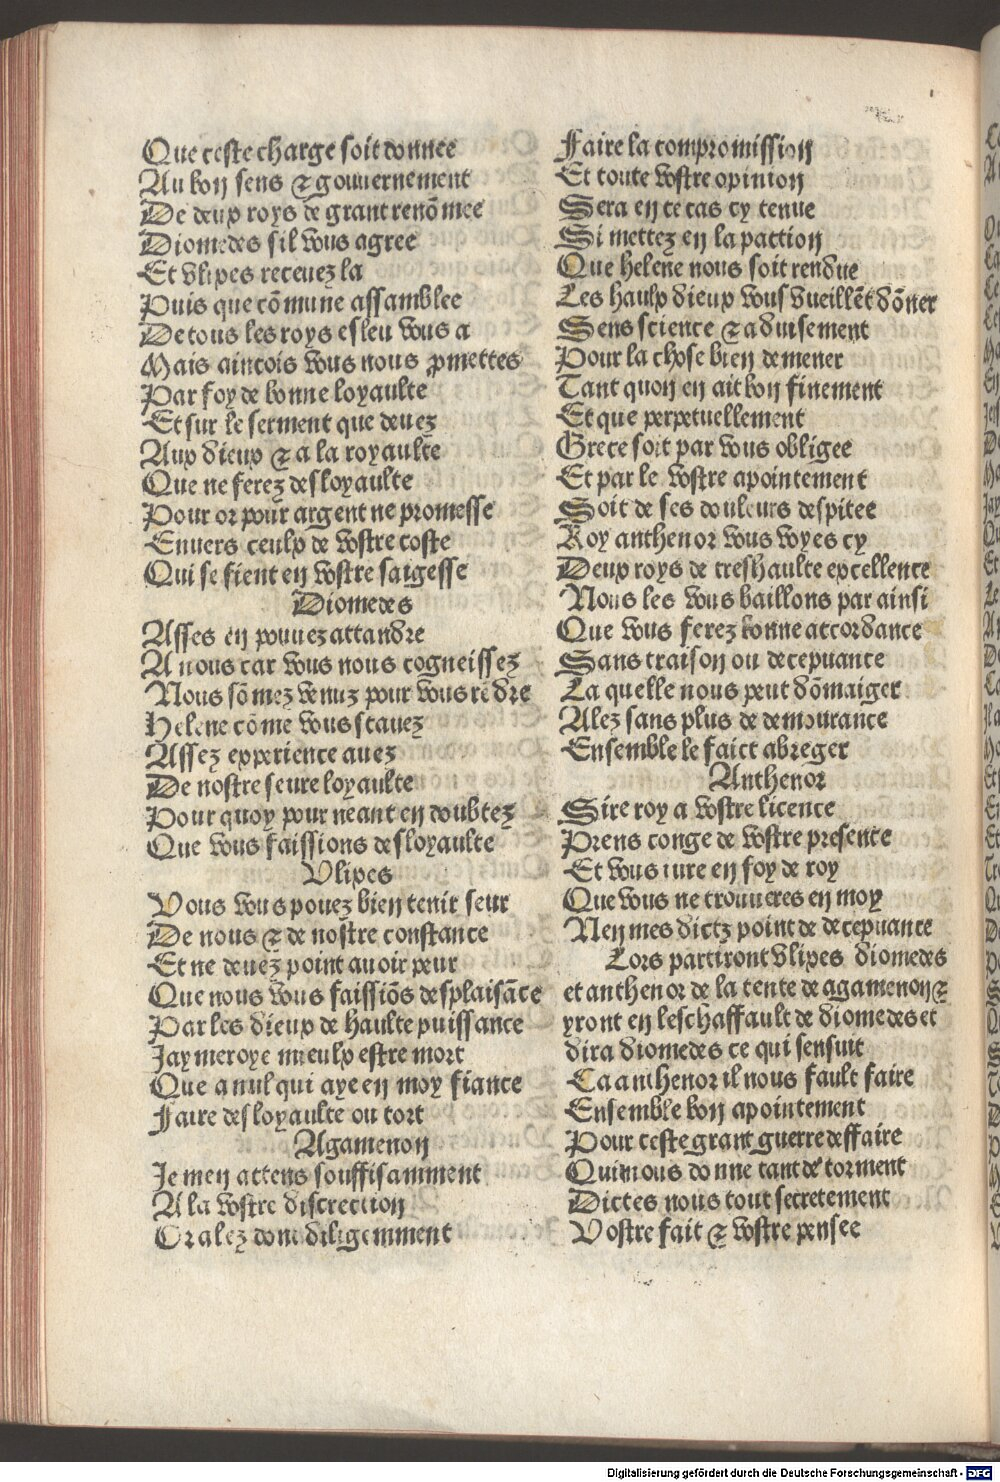 Que ceste charge soit donnee
Au bon sens ⁊ gouuernement
De deux roys de grant renõmee
Diomedes sil vous agree
Et vlixes receuez la
Puis que cõmune assamblee
De tous les roys esleu vous a
Mais aincois vous nous ꝓmettes
Par foy de bonne loyaulte
Et sur le serment que deuez
Aux dieux ⁊ a la royaulte
Que ne ferez desloyaulte
Pour or pour argent ne promesse
Enuers ceulx de vostre coste
Qui se fient en vostre saigesse
Diomedes
Asses en pouuez attandre
A nous car vous nous cogneissez
Nous sõmez venuz pour vous rẽdre
Helene cõme vous scauez
Assez experience auez
De nostre seure loyaulte
Pour quoy pour neant en doubtez
Que vous faissions desloyaulte
Vlixes
Vous vous pouez bien tenir seur
De nous ⁊ de nostre constance
Et ne deuez point auoir peur
Que nous vous faissiõs desplaisãce
Par les dieux de haulte puissance
Jaymeroye mieulx estre mort
Que a nul qui aye en moy fiance
Faire desloyaulte ou tort
Agamenon
Je men attens souffisamment
A la vostre discrection
Or alez donc diligemment
Faire la compromission
Et toute vostre opinion
Sera en ce cas cy tenue
Si mettez en la paction
Que helene nous soit rendue
Les haulx dieux vous vueillẽt dõner
Sens science ⁊ aduisement
Pour la chose bien demener
Tant quon en ait bon finement
Et que perpetuellement
Grece soit par vous obligee
Et par le vostre apointement
Soit de ses douleurs despitee
Roy anthenor vous voyes cy
Deux roys de treshaulte excellence
Nous les vous baillons par ainsi
Que vous ferez bonne accordance
Sans traison ou decepuance
La quelle nous peut dõmaiger
Alez sans plus de demourance
Ensemble le faict abreger
Anthenor
Sire roy a vostre licence
Prens conge de vostre presente
Et vous iure en foy de roy
Que vous ne trouueres en moy
Nen mes dictz point de decepuance
Lors partiront vlixes diomedes
et anthenor de la tente de agamenon ⁊
yront en leschaffault de diomedes et
dira diomedes ce qui sensuit
Ca anthenor il nous fault faire
Ensemble bon apointement
Pour ceste grant guerre deffaire
Qui nous donne tant de torment
Dictes nous tout secretement
Vostre fait ⁊ vostre pensee
Digitalisierung gefördert durch die Deutsche Forschungsgemeinschaft - DFG